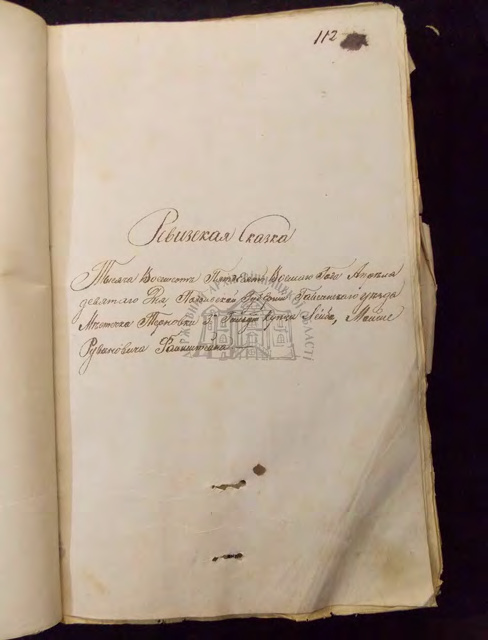 112
Ревизская Сказка
Тысяча Восемсот Пятдесят Восмого Года Апреля
девятаго Дня, Подольской Губернии Гайсинского уезда
Местечка Терновки 3й Гильдии Купца Лейба, Мошке
Рувановича